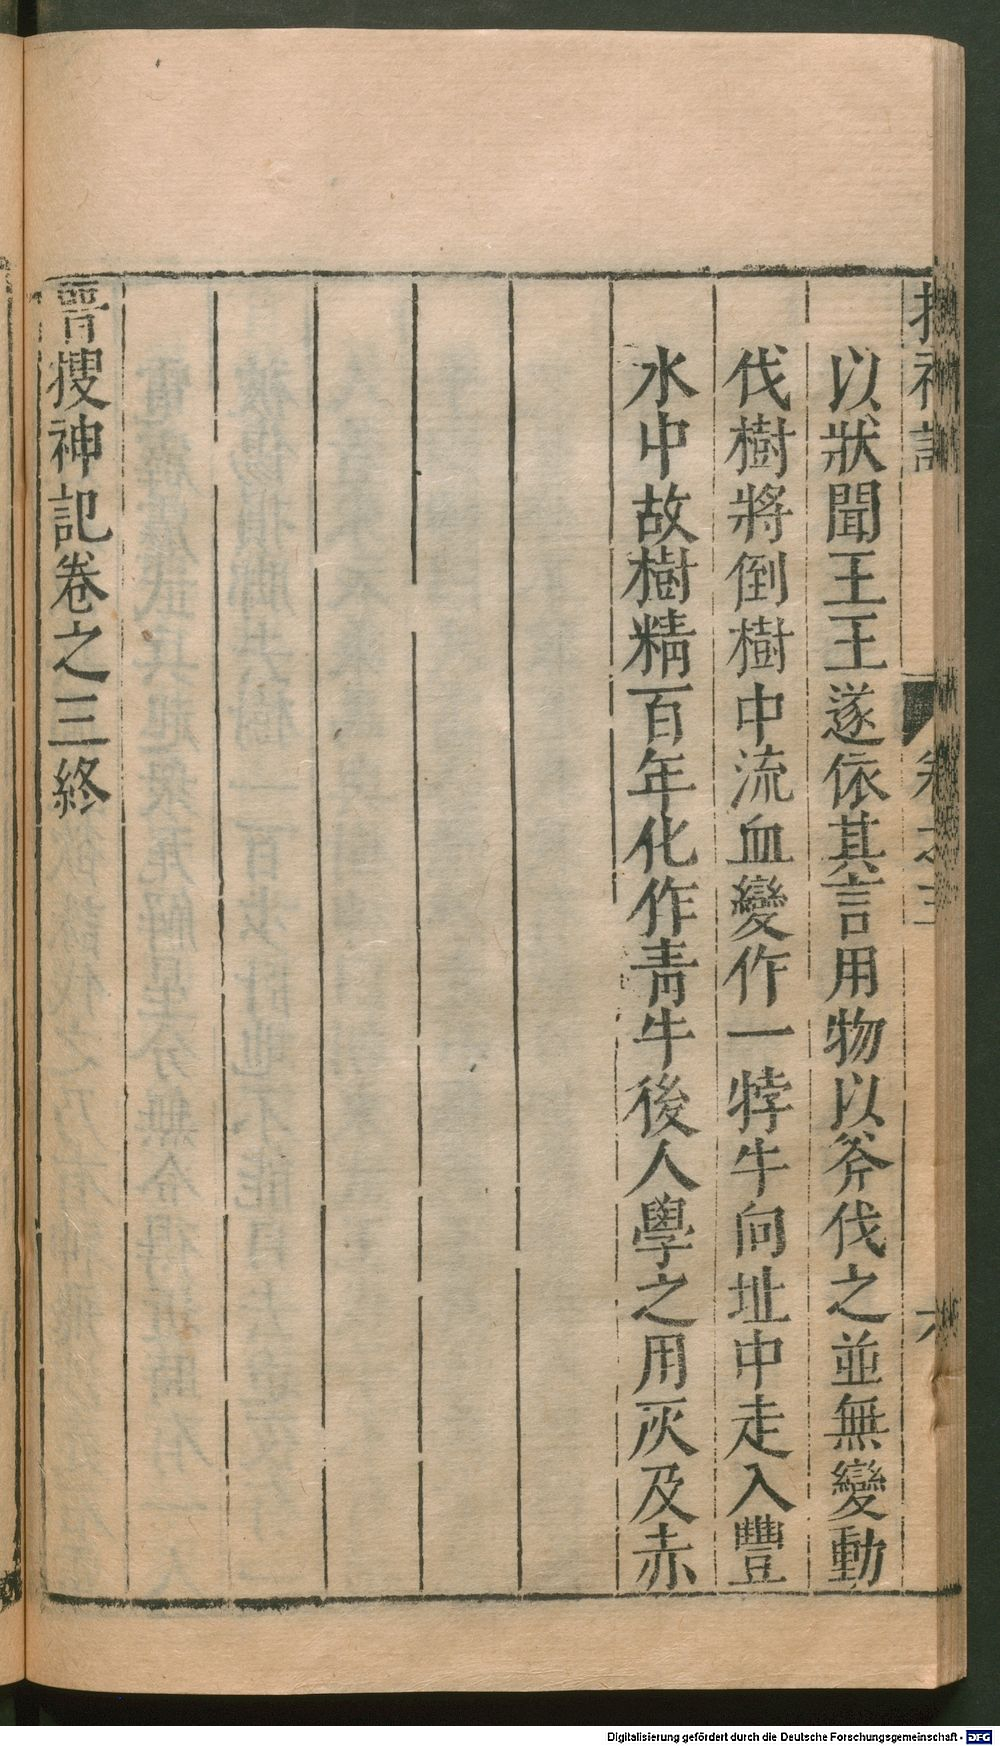 搜神記 卷之三 六
以狀聞王王遂依其言用物以斧伐之並無變動
伐樹將倒樹中流血變作一牸牛向址中走入豐
水中故樹精百年化作青牛後人學之用灰及赤
晉搜神記卷之三終
Digitalisierung gefördert durch die Deutsche Forschungsgemeinschaft - DFG